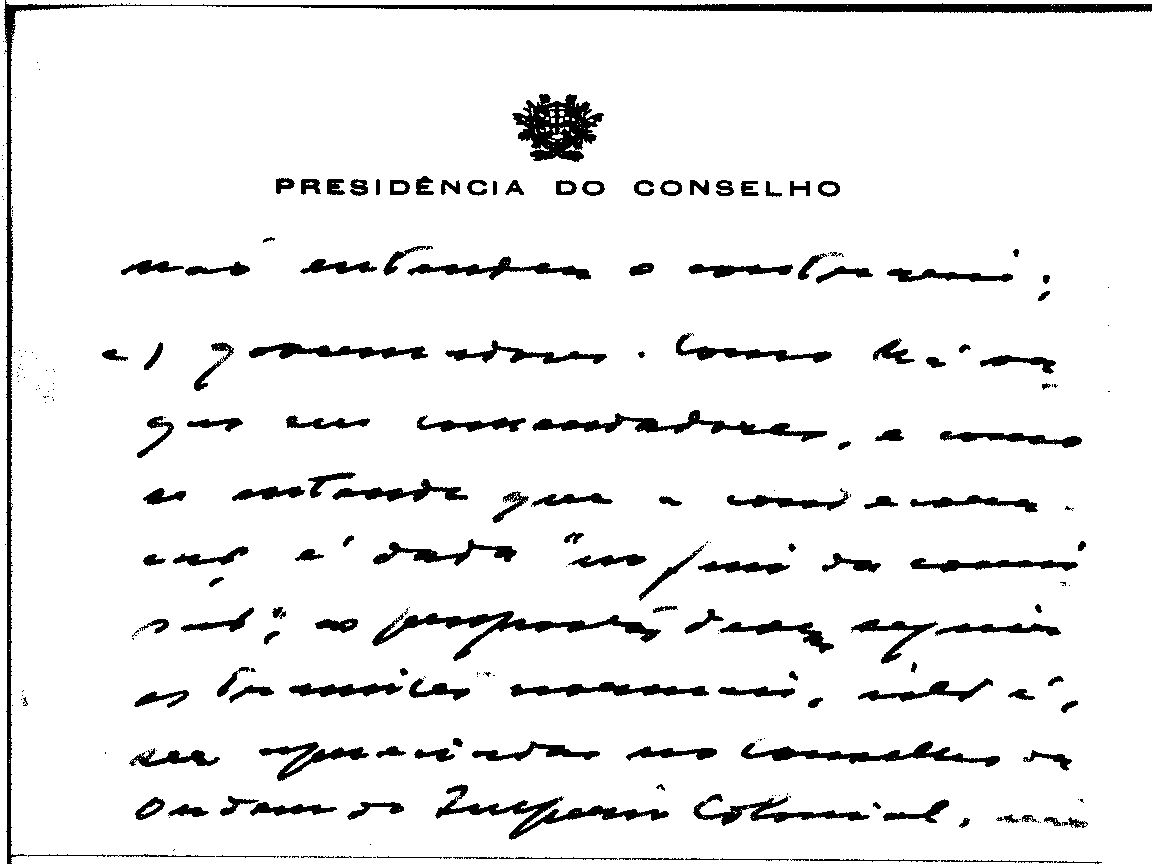 PRESIDÊNCIA DO CONSELHO
não entender o contrario;
c) governadores. Como há va
gas em comendadores, e como
se entende que a condecora-
ção é dada "no fim da comis
são", as propostas devem seguir
os tramites normais, isto é,
ser apreciadas no Conselho da
Ordem do Imperio Colonial,